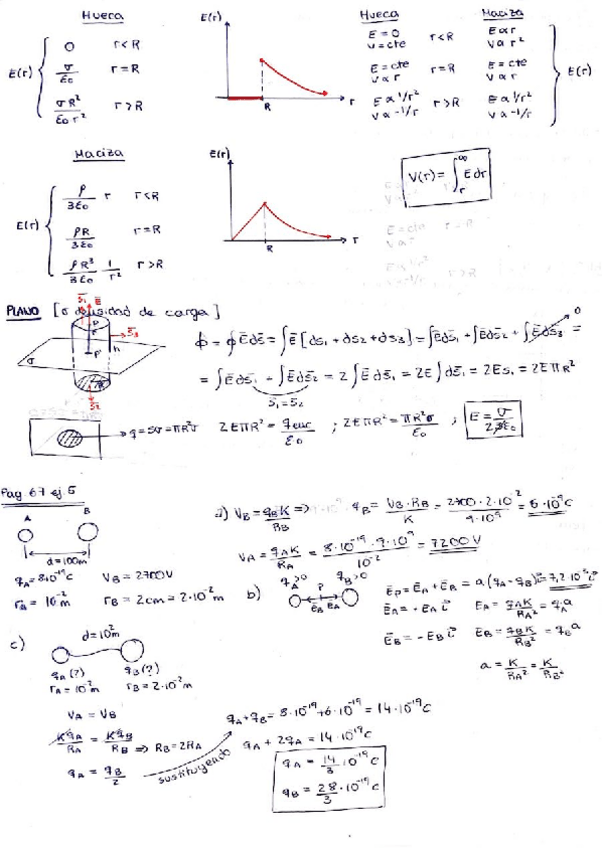 Hueca
E(r) { 0 r<R
σ/ε₀ r=R
σR²/ε₀r² r>R
E(r)
R
r
Hueca Maciza
E=0 r<R E∝r
V=cte V∝r²
E=cte r=R E=cte
V∝r V∝r
E∝1/r² r>R E∝1/r²
V∝-1/r V∝-1/r
} E(r)
Maciza
E(r) { ρ/3ε₀ r r<R
ρR/3ε₀ r=R
ρR³/3ε₀ 1/r² r>R
E(r)
R
r
V(r) = ∫ᵣ^∞ E dr
PLANO [σ densidad de carga]
S₁ E
P
r
S₃
h
P'
σ
R
S₂
ϕ = ∮Ēds̄ = ∫Ē[ds₁+ds₂+ds₃] = ∫Ēds̄₁ + ∫Ēds̄₂ + ∫Ēds̄₃ =
0
= ∫Ēds̄₁ + ∫Ēds̄₂ = 2∫Ēds̄₁ = 2E∫ds̄₁ = 2Es₁ = 2EπR²
S₁=S₂
q=sσ=πR²σ 2EπR² = q enc/ε₀ ; 2EπR² = πR²σ/ε₀ ; E = σ/2ε₀
Pag. 67 ej. 5
A B
d=100m
qA=8·10⁻¹⁹C VB=2700V
rA=10⁻²m rB=2cm=2·10⁻²m
a) VB = qBK/RB => qB = VB·RB/K = 2700·2·10⁻²/9·10⁹ = 6·10⁻⁹C
VA = qAK/RA = 8·10⁻¹⁹·9·10⁹/10⁻² = 7200V
b) qA>0 P qB>0
ĒB ĒA
ĒP=ĒA+ĒB = a(qA-qB)
ĒA=-EA i EA = qAK/RA² = qA a
ĒB=-EB i EB = qBK/RB² = qB a
a = K/RA² = K/RB²
c)
d=10²m
qA(?) qB(?)
rA=10⁻²m rB=2·10⁻²m
VA = VB
KqA/RA = KqB/RB => RB=2RA
qA = qB/2
sustituyendo
qA+qB = 8·10⁻¹⁹+6·10⁻¹⁹ = 14·10⁻¹⁹C
qA + 2qA = 14·10⁻¹⁹C
qA = 14/3·10⁻¹⁹C
qB = 28/3·10⁻¹⁹C